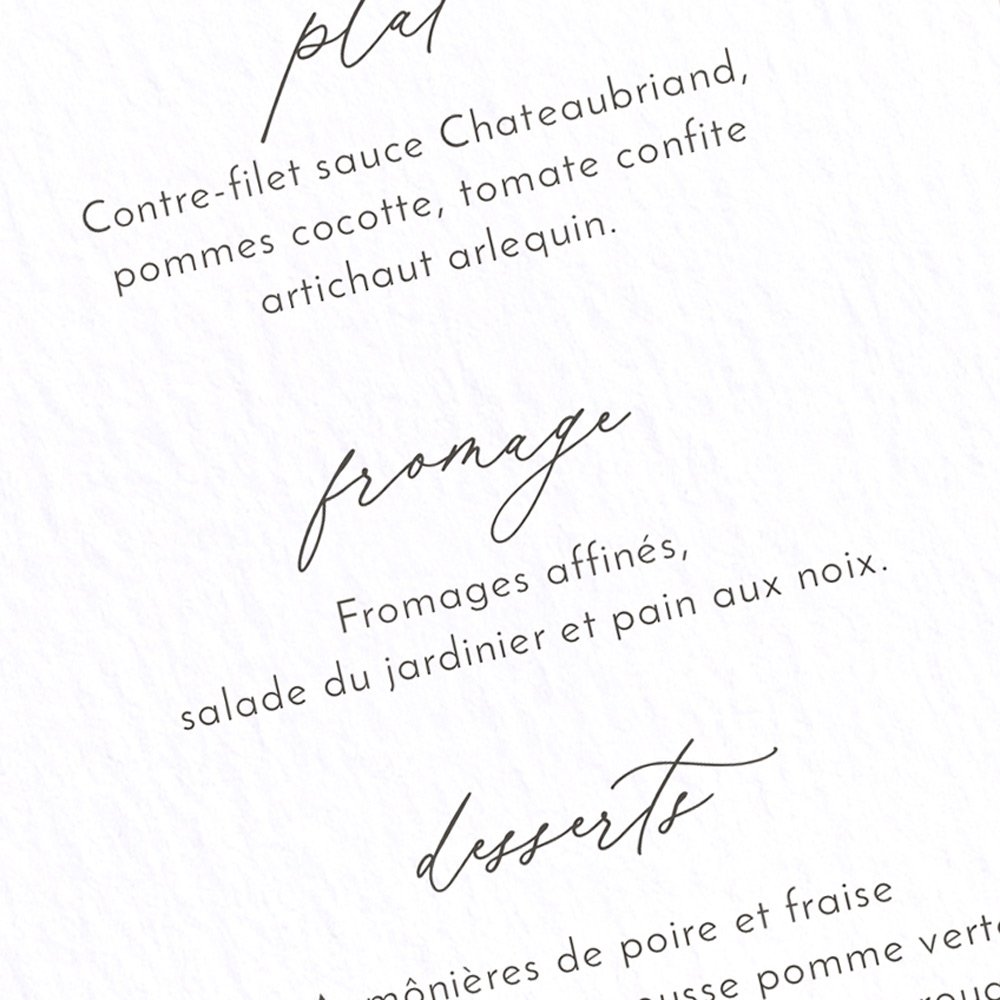 plat
Contre-filet sauce Chateaubriand,
pommes cocotte, tomate confite
artichaut arlequin.
fromage
Fromages affinés,
salade du jardinier et pain aux noix.
desserts
de poire et fraise
pomme